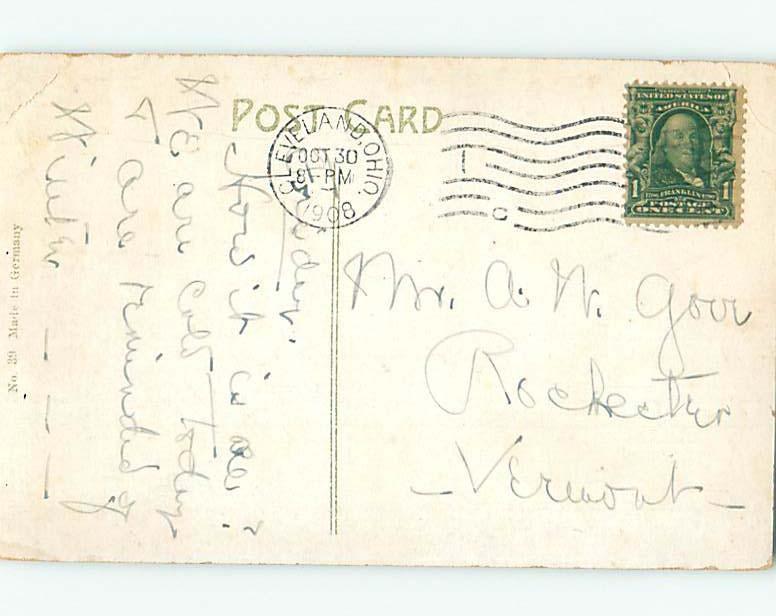 POST CARD
CLEVELAND, OHIO.
OCT 30
8-PM
1908
UNITED STATES OF
AMERICA
1 FRANKLIN 1
POSTAGE
ONE CENT
Friday.
How is it
We are cold today
& are reminded of
Winter - - -
Mr. A. W.
Rochester
- Vermont -
No. 39 Made in Germany